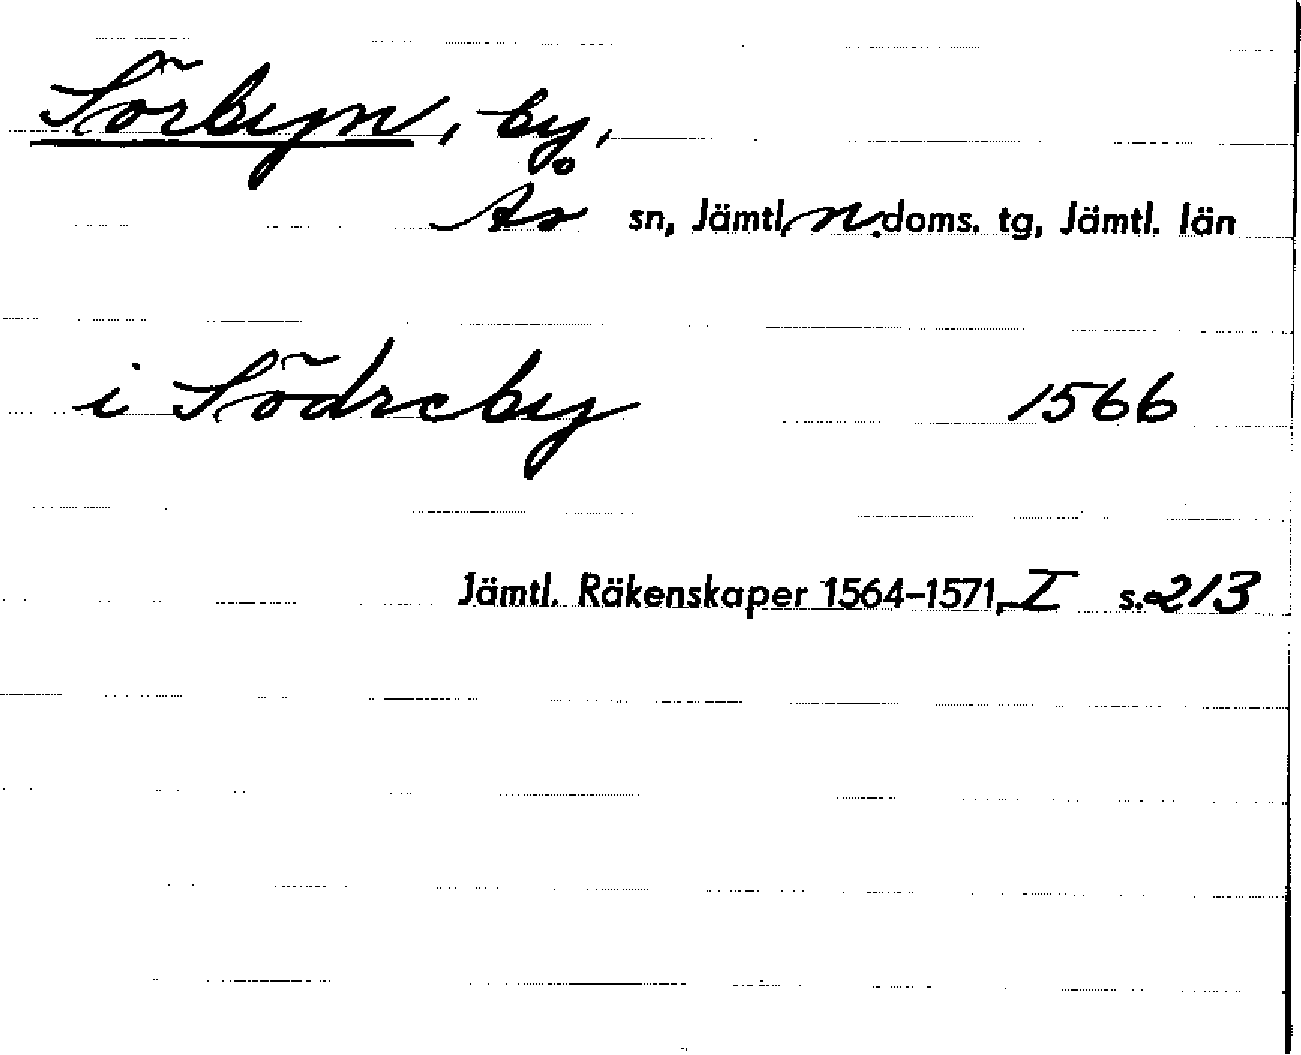 Sörbyn, by,
Ås sn, Jämtl, n. doms. tg, Jämtl. län
i Södreby 1566
Jämtl. Räkenskaper 1564-1571, I s. 213